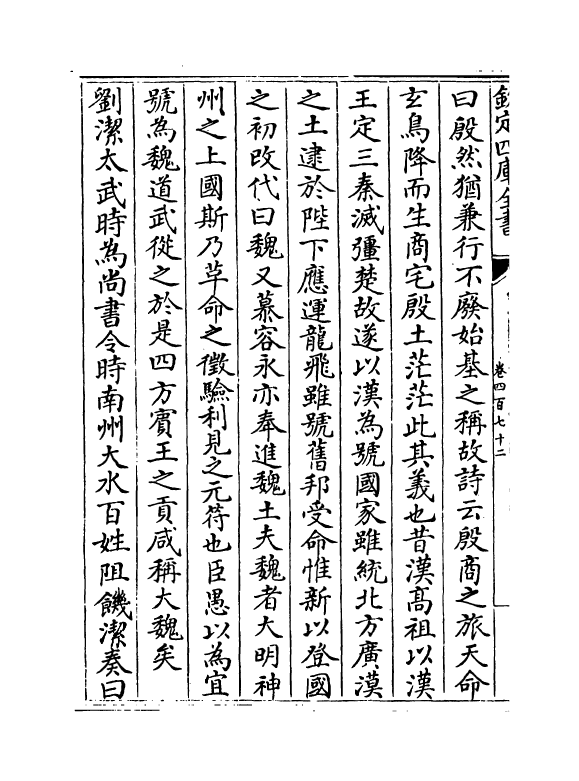 欽定四庫全書
卷四百七十二
曰殷然猶兼行不廢始基之稱故詩云殷商之旅天命
玄鳥降而生商宅殷土茫茫此其義也昔漢髙祖以漢
王定三秦滅彊楚故遂以漢為號國家雖統北方廣漠
之土逮於陛下應運龍飛雖號舊邦受命惟新以登國
之初改代曰魏又慕容永亦奉進魏土夫魏者大明神
州之上國斯乃草命之徵驗利見之元符也臣愚以為宜
號為魏道武從之於是四方賓王之貢咸稱大魏矣
劉潔太武時為尚書令時南州大水百姓阻饑潔奏曰